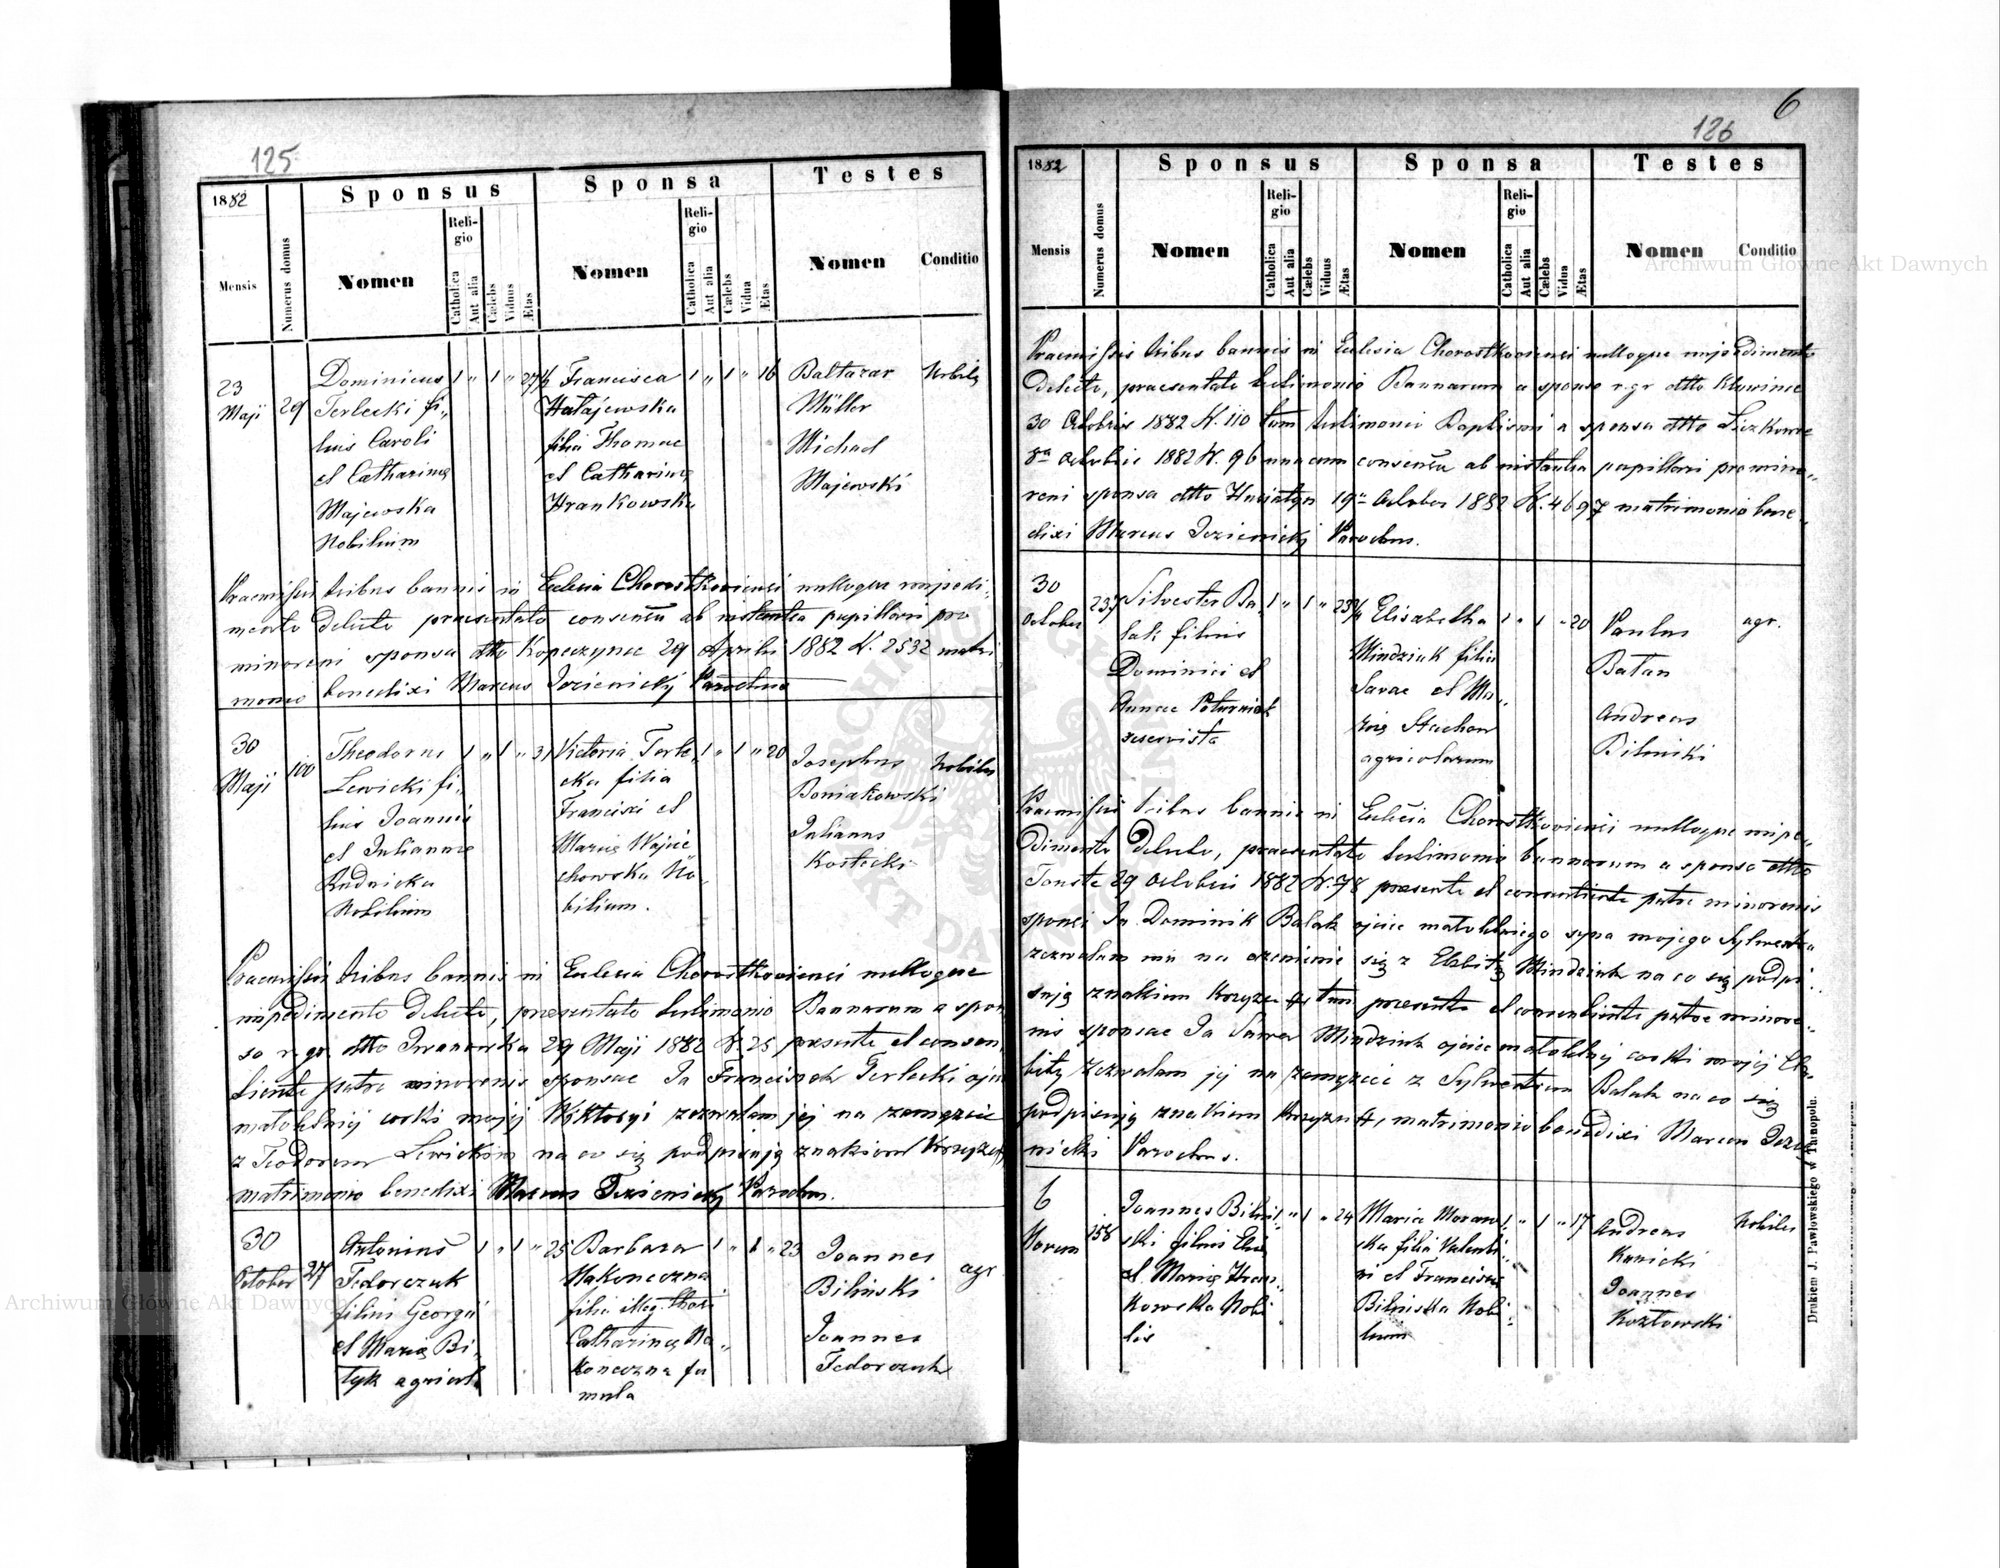 125
1882
Sponsus
Sponsa
Testes
Mensis
Numerus domus
Nomen
Religio
Catholica
Aut alia
Cælebs
Viduus
Ætas
Nomen
Religio
Catholica
Aut alia
Cælebs
Vidua
Ætas
Nomen
Conditio
23 Maji
29
Dominicus
Terlecki fi„
lius Caroli
et Catharinę
Majewska
Nobilium
1 „ 1 „ 27½
Francisca
Hałajewska
filia Thomae
et Catharinę
Hrankowska
1 „ 1 „ 16
Baltazar
Müller
Michael
Majewski
Praemissis tribus bannis in Eclesia Chorostkoviensi nulloque impedi„
mento delecto praesentato consensu ab instantia pupillari pro
minoreni sponsa dtto Kopeczynce 29 Aprilis 1882 N. 2532 matri
monio benedixi Marcus Jezienicky Parochus
30 Maji
100
Theodorus
Lewicki fi„
lius Joannis
et Julianne
Rudnicka
Nobilium
1 „ 1 „ 31
Victoria Terle„
cka filia
Francisci et
Marię Wojcie
chowska No„
bilium.
1 „ 1 „ 20
Josephus
Boniakowski
Julianus
Kostecki
Nobiles
Praemissis tribus bannis in Eclesia Chorostkoviensi nulloque
impedimento delecto, praesentato testimonio Bannarum a spon
so r. gr. dtto Iwanowka 29 Maji 1882 N. 25 presente et consen„
tiente patre minorenis sponsae Ja Franciszek Terlecki ojciec
małoletnij corki mojej Wiktoryi zezwalam jej na zamęzcie
z Teodorem Lewickim na co się podpisuję znakiem Krzyża
matrimonio benedixi Marcus Jezienicky Parochus.
30
October
27
Antonius
Fedorczuk
filius Georgii
et Marię Bi„
tyk agricol
1 „ 1 „ 25
Barbara
Nakoneczna
filia illeg. thori
Catharinę Na„
koneczna fa
mula
1 „ 1 „ 23
Joannes
Biliński
Joannes
Fedorczuk
agr
6
126
1882
Sponsus
Sponsa
Testes
Mensis
Numerus domus
Nomen
Religio
Catholica
Aut alia
Cælebs
Viduus
Ætas
Nomen
Religio
Catholica
Aut alia
Cælebs
Vidua
Ætas
Nomen
Conditio
Praemissis tribus bannis in Eclesia Chorostkoviensi nulloque impedimento
delecto, praesentato testimonio Bannarum a sponso r. gr. dtto Kluwince
30 Octobris 1882 N. 110 tum testimonii Baptismi a sponsa dtto
8va Octobris 1882 N. 96 una cum consensu ab instantia pupillari pro mino„
reni sponsa dtto Husiatyn 19a October 1882 N. 4697 matrimonio bene„
dixi Marcus Jezienicky Parochus.
30
October
237
Silvester Ba„
lak filius
Dominici et
Annae Poturniak
reservista
1 „ 1 „ 23¼
Elisabetha
Mindziuk filia
Savae et Ma„
rię Stachow
agricolarum
1 „ 1 „ 20
Paulus
Bałan
Andreas
Bilinski
agr.
Praemissis tribus bannis in Eclesia Chorostkoviensi nulloque impe„
dimento delecto, praesentato testimonio bannarum a sponso dtto
Touste 29 Octobris 1882 N. 78 presente et consentiente patre minorenis
sponsi Ja Dominik Balak ojciec małoletniego syna mojego Sylwestra
zezwalam mu na ozenienie się z Elzbietą Mindziuk na co się podpi„
suję znakiem Krzyża + tum presente et consentiente patre minore„
nis sponsae Ja Sawa Mindziuk ojciec małoletnij corki mojej Elz„
biety zezwalam jej na zamęzcie z Sylwestrem Balak na co się
podpisuję znakiem Krzyża +, matrimonio benedixi Marcus Jezie
nicki Parochus.
6
Novem
158
Joannes Biliń„
ski filius Eliae
et Marię Hran„
kowska Nobi
lis
1 „ 1 „ 24
Maria Moraw„
ska filia Valenti„
ni et Francisca
Bilinska Nobi„
lium
1 „ 1 „ 17
Andreas
Kanicki
Joannes
Kozłowski
Nobiles
Drukiem J. Pawłowskiego w Tarnopolu.
Archiwum Główne Akt Dawnych
Archiwum Główne Akt Dawnych
ARCHIWUM GŁÓWNE AKT DAWNYCH